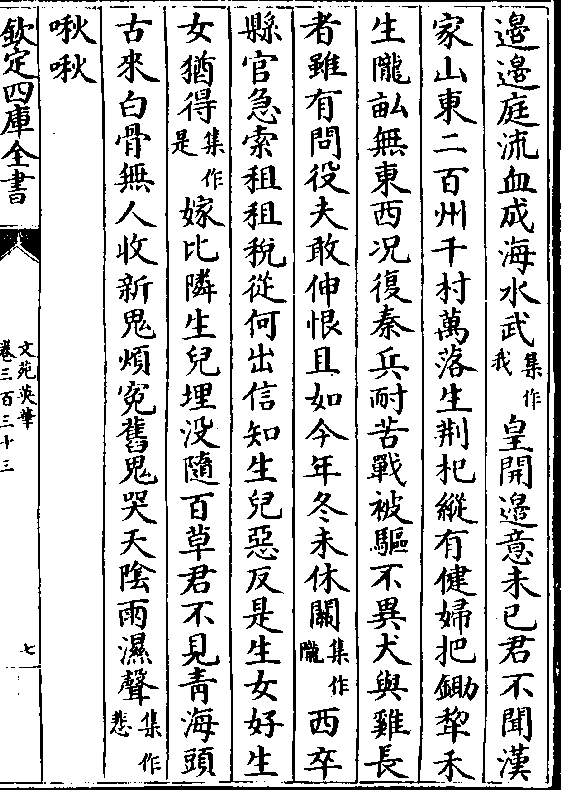 邉邉庭流血成海水武集作我皇開邉意未已君不聞漢
家山東二百州千村萬落生荆杞縱有健婦把鋤犂禾
生隴畝無東西况復秦兵耐苦戰被驅不異犬與雞長
者雖有問役夫敢伸恨且如今年冬未休關集作隴西卒
縣官急索租租稅從何出信知生兒惡反是生女好生
女猶得集作是嫁比隣生兒埋没隨百草君不見青海頭
古來白骨無人收新鬼煩寃舊鬼哭天陰雨濕聲集作悲
啾啾
欽定四庫全書
文苑英華
卷三百三十三
七